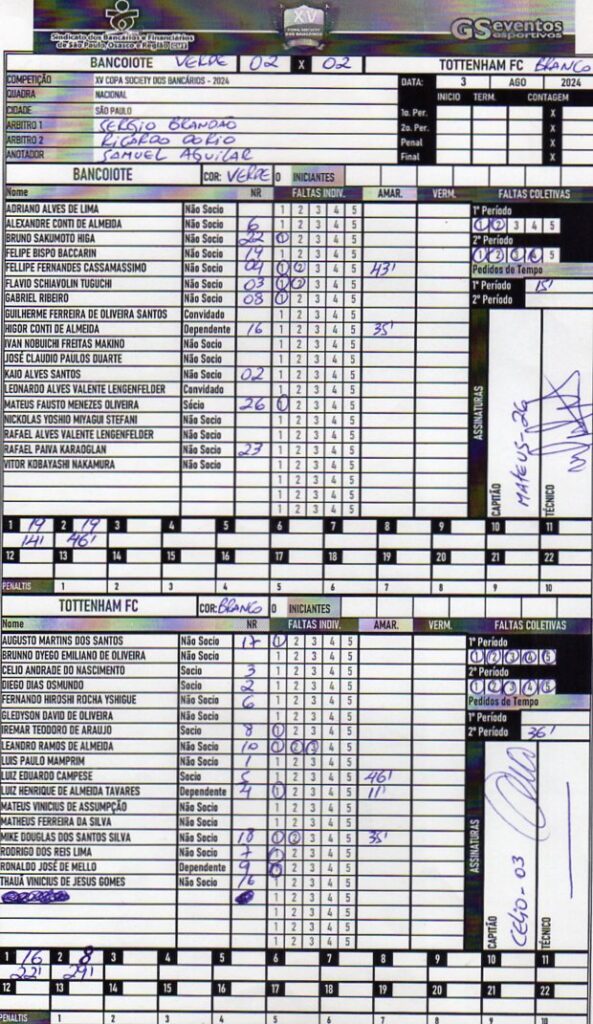 Sindicato dos Bancários e Financiários
de São Paulo, Osasco e Região CUT
XV
COPA SOCIETY
DOS BANCÁRIOS
GSeventos
esportivos
BANCOIOTE VERDE 02 X 02 TOTTENHAM FC BRANCO
COMPETIÇÃO XV COPA SOCIETY DOS BANCÁRIOS - 2024 DATA: 3 AGO 2024
QUADRA NACIONAL INICIO TERM. CONTAGEM
CIDADE SÃO PAULO 1o. Per. X
ARBITRO 1 SERGIO BRANDÃO 2o. Per. X
ARBITRO 2 RICARDO DORIO Penal X
ANOTADOR SAMUEL AGUILAR Final X
BANCOIOTE COR: VERDE 0 INICIANTES
Nome NR FALTAS INDIV. AMAR. VERM. FALTAS COLETIVAS
ADRIANO ALVES DE LIMA Não Socio 1 2 3 4 5 1º Período
ALEXANDRE CONTI DE ALMEIDA Não Socio 6 1 2 3 4 5 1 2 3 4 5
BRUNO SAKUMOTO HIGA Não Socio 22 1 2 3 4 5 2º Período
FELIPE BISPO BACCARIN Não Socio 19 1 2 3 4 5 1 2 3 4 5
FELLIPE FERNANDES CASSAMASSIMO Não Socio 09 1 2 3 4 5 43' Pedidos de Tempo
FLAVIO SCHIAVOLIN TUGUCHI Não Socio 03 1 2 3 4 5 1º Período 15'
GABRIEL RIBEIRO Não Socio 08 1 2 3 4 5 2º Período
GUILHERME FERREIRA DE OLIVEIRA SANTOS Convidado 1 2 3 4 5
HIGOR CONTI DE ALMEIDA Dependente 16 1 2 3 4 5 35'
IVAN NOBUICHI FREITAS MAKINO Não Socio 1 2 3 4 5
JOSÉ CLAUDIO PAULOS DUARTE Não Socio 1 2 3 4 5
KAIO ALVES SANTOS Não Socio 02 1 2 3 4 5
LEONARDO ALVES VALENTE LENGENFELDER Convidado 1 2 3 4 5
MATEUS FAUSTO MENEZES OLIVEIRA Sócio 26 1 2 3 4 5
NICKOLAS YOSHIO MIYAGUI STEFANI Não Socio 1 2 3 4 5
RAFAEL ALVES VALENTE LENGENFELDER Não Socio 1 2 3 4 5
RAFAEL PAIVA KARAOGLAN Não Socio 23 1 2 3 4 5
VITOR KOBAYASHI NAKAMURA Não Socio 1 2 3 4 5
1 2 3 4 5
1 2 3 4 5
1 2 3 4 5
ASSINATURAS
CAPITÃO MATEUS-26
TÉCNICO
1 19 2 19 3 4 5 6 7 8 9 10 11
14' 46'
12 13 14 15 16 17 18 19 20 21 22
PENALTIS 1 2 3 4 5 6 7 8 9 10
TOTTENHAM FC COR: BRANCO 0 INICIANTES
Nome NR FALTAS INDIV. AMAR. VERM. FALTAS COLETIVAS
AUGUSTO MARTINS DOS SANTOS Não Socio 17 1 2 3 4 5 1º Período
BRUNNO DYEGO EMILIANO DE OLIVEIRA Não Socio 1 2 3 4 5 1 2 3 4 5
CELIO ANDRADE DO NASCIMENTO Socio 3 1 2 3 4 5 2º Período
DIEGO DIAS OSMUNDO Socio 2 1 2 3 4 5 1 2 3 4 5
FERNANDO HIROSHI ROCHA YSHIGUE Não Socio 6 1 2 3 4 5 Pedidos de Tempo
GLEDYSON DAVID DE OLIVEIRA Não Socio 1 2 3 4 5 1º Período
IREMAR TEODORO DE ARAUJO Socio 8 1 2 3 4 5 2º Período 36'
LEANDRO RAMOS DE ALMEIDA Não Socio 10 1 2 3 4 5
LUIS PAULO MAMPRIM Não Socio 1 1 2 3 4 5
LUIZ EDUARDO CAMPESE Socio 5 1 2 3 4 5 46'
LUIZ HENRIQUE DE ALMEIDA TAVARES Dependente 4 1 2 3 4 5 11'
MATEUS VINICIUS DE ASSUMPÇÃO Não Socio 1 2 3 4 5
MATHEUS FERREIRA DA SILVA Não Socio 1 2 3 4 5
MIKE DOUGLAS DOS SANTOS SILVA Não Socio 18 1 2 3 4 5 35'
RODRIGO DOS REIS LIMA Não Socio 7 1 2 3 4 5
RONALDO JOSÉ DE MELLO Dependente 9 1 2 3 4 5
THAUÃ VINICIUS DE JESUS GOMES Não Socio 16 1 2 3 4 5
1 2 3 4 5
1 2 3 4 5
1 2 3 4 5
1 2 3 4 5
ASSINATURAS
CAPITÃO CELIO-03
TÉCNICO
1 16 2 8 3 4 5 6 7 8 9 10 11
22' 29'
12 13 14 15 16 17 18 19 20 21 22
PENALTIS 1 2 3 4 5 6 7 8 9 10